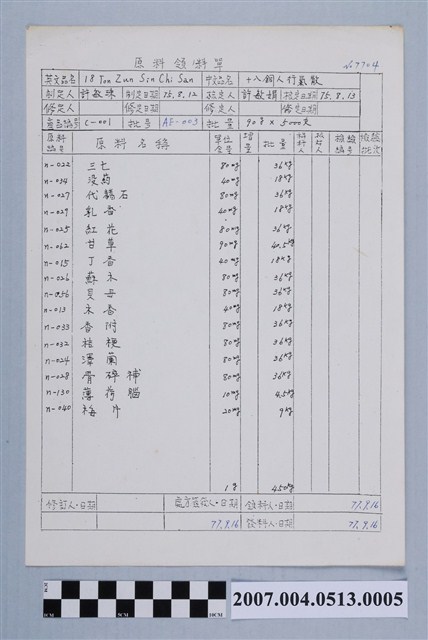 原料領料單
No 7704
英文品名 18 Ton Zun Sin Chi San 中文品名 十八銅人行氣散
制定人 許敏珠 制定日期 75.8.12 核定人 許敏娟 核定日期 75.8.13
修定人 修定日期 修定人 修定日期
產品編號 C-001 批号 AF-003 批量 90g × 5000支
原料編号 原料名稱 單位含量 增量 批量 領料人 核發人 檢驗編号 檢驗批次
n-022 三七 80mg 36kg
n-034 没药 40mg 18kg
n-027 代赭石 80mg 36kg
n-029 乳香 40mg 18kg
n-025 紅花 80mg 36kg
n-062 甘草 90mg 40.5kg
n-015 丁香 40mg 18kg
n-026 蘇木 80mg 36kg
n-036 貝母 80mg 36kg
n-013 木香 40mg 18kg
n-033 香附 80mg 36kg
n-032 桔梗 80mg 36kg
n-024 澤蘭 80mg 36kg
n-028 骨碎補 80mg 36kg
n-130 薄荷腦 10mg 4.5kg
n-040 梅片 20mg 9kg
1g 450kg
修訂人·日期 領料人·日期 77.9.16
77.9.16 發料人·日期 77.9.16
2007.004.0513.0005